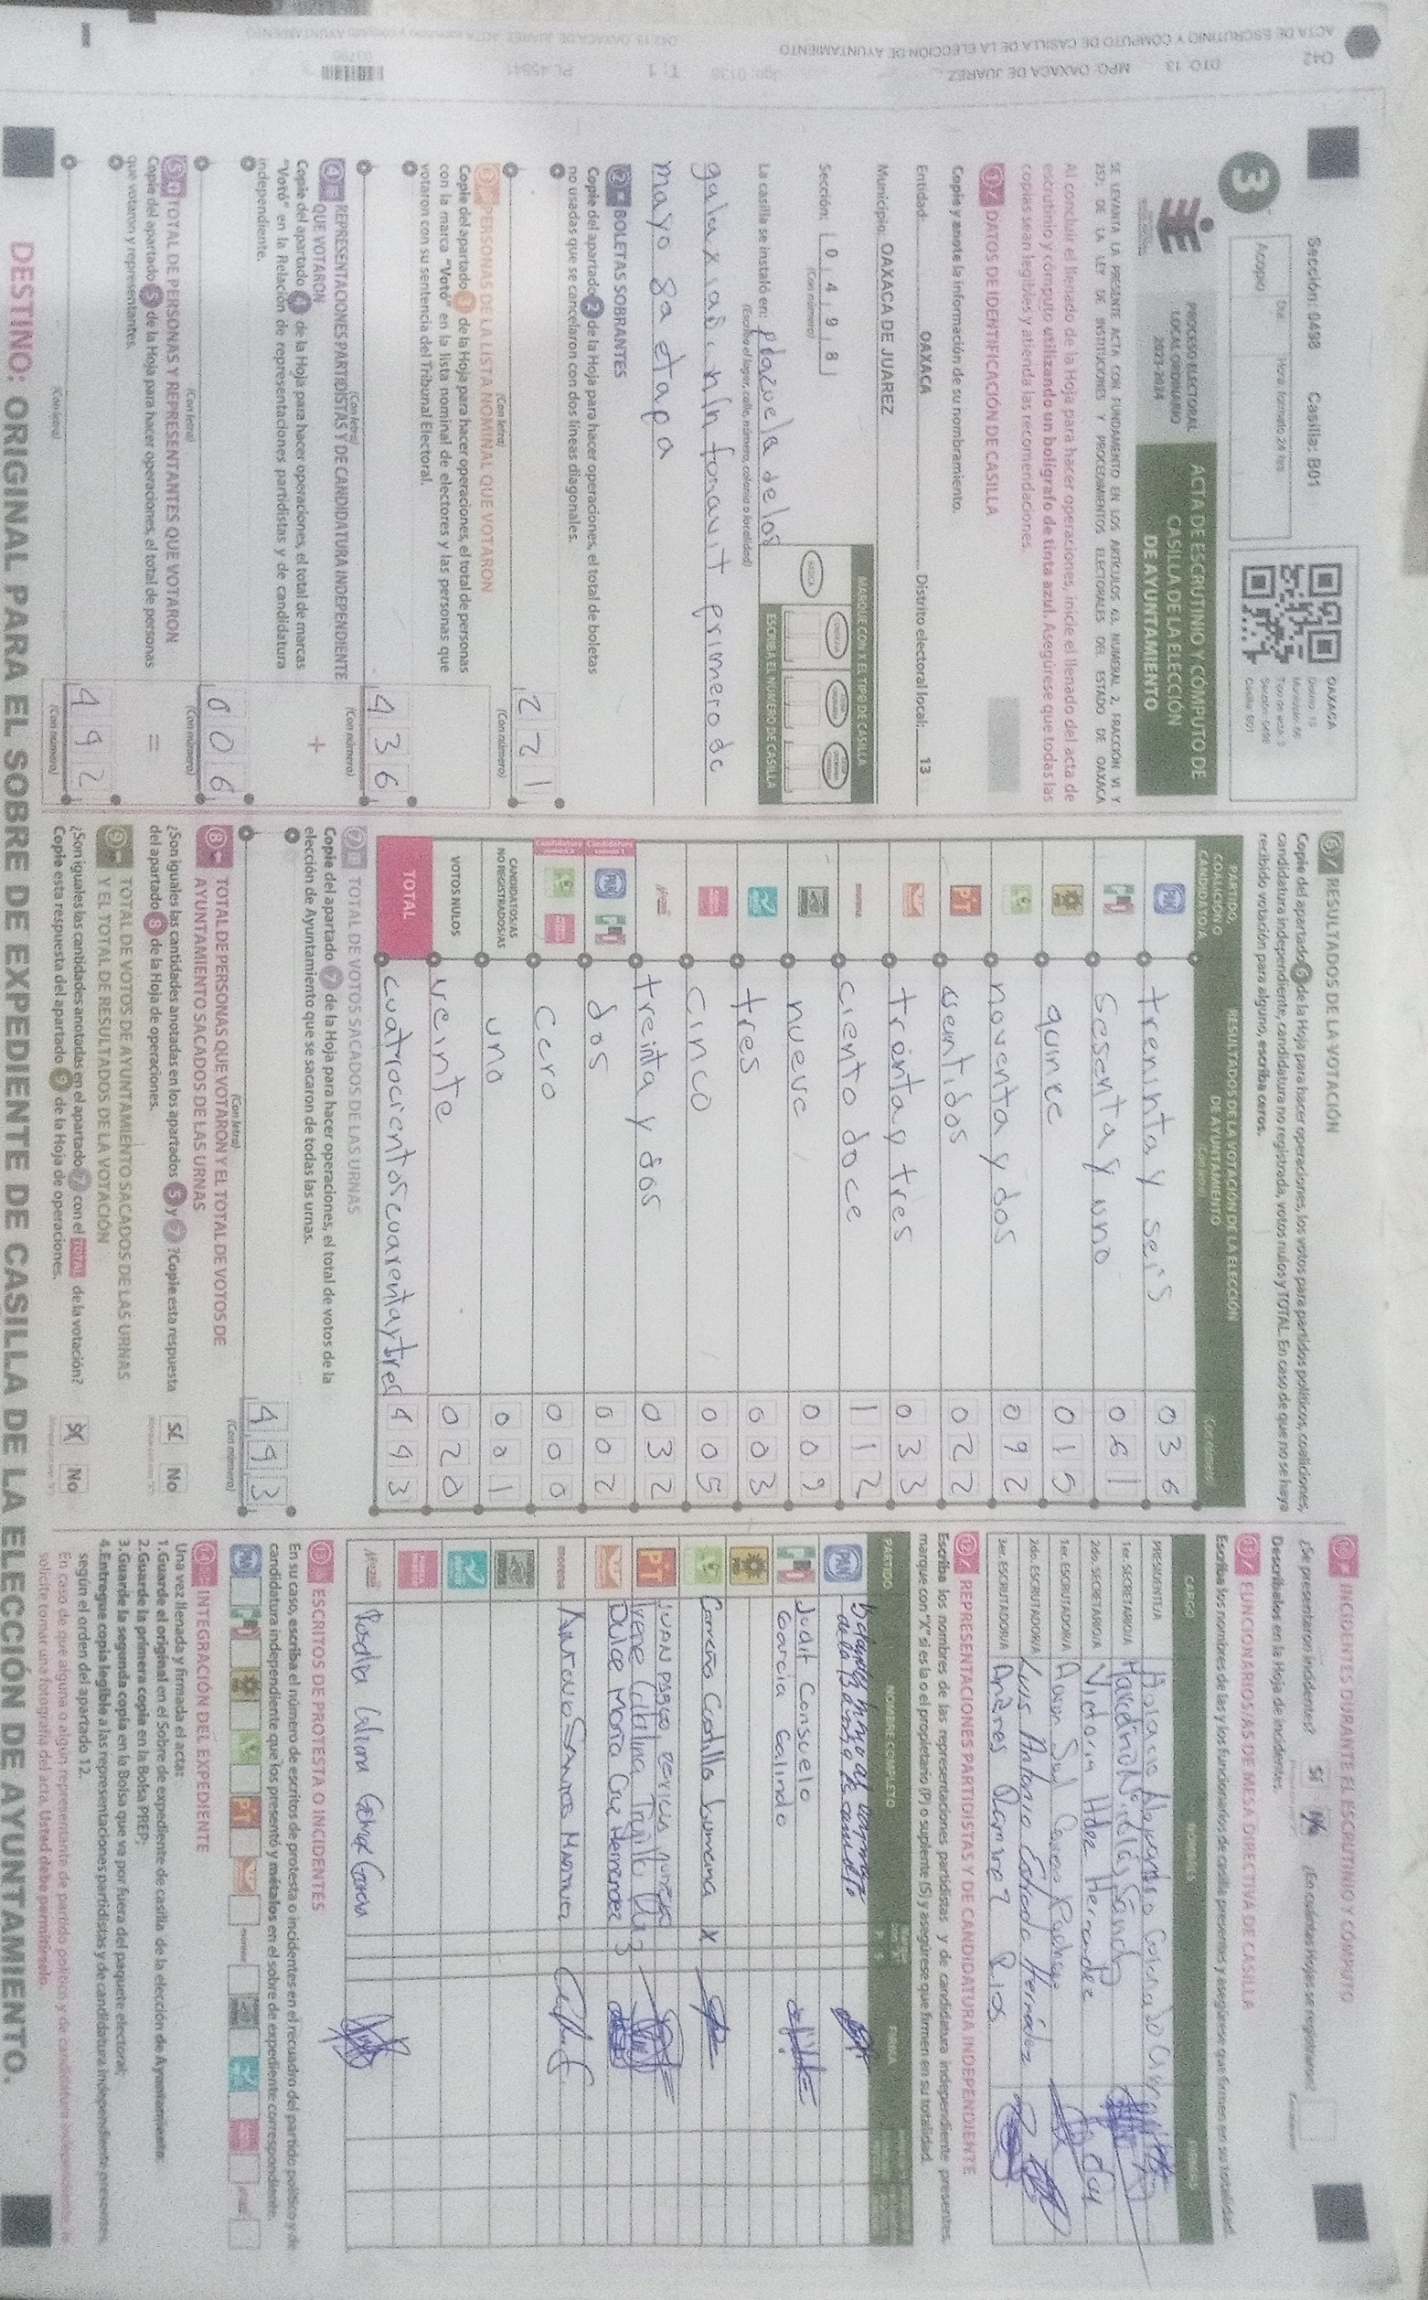 Sección: 0498 Casilla: B01
Día Hora formato 24 hrs
Acopio
3
OAXACA
PROCESO ELECTORAL
LOCAL ORDINARIO
2023-2024
ACTA DE ESCRUTINIO Y CÓMPUTO DE
CASILLA DE LA ELECCIÓN
DE AYUNTAMIENTO
SE LEVANTA LA PRESENTE ACTA CON FUNDAMENTO EN LOS ARTÍCULOS 63, NUMERAL 2, FRACCIÓN VI Y
257, DE LA LEY DE INSTITUCIONES Y PROCEDIMIENTOS ELECTORALES DEL ESTADO DE OAXACA
Al concluir el llenado de la Hoja para hacer operaciones, inicie el llenado del acta de
escrutinio y cómputo utilizando un bolígrafo de tinta azul. Asegúrese que todas las
copias sean legibles y atienda las recomendaciones.
1 DATOS DE IDENTIFICACIÓN DE CASILLA
Copie y anote la información de su nombramiento.
Entidad: OAXACA Distrito electoral local: 13
Municipio: OAXACA DE JUAREZ
Sección: 0 4 9 8
(Con número)
MARQUE CON X EL TIPO DE CASILLA
ESCRIBA EL NÚMERO DE CASILLA
La casilla se instaló en: plazuela de los
(Escriba el lugar, calle, número, colonia o localidad)
galaxias. ninfonavit primero de
mayo 8a etapa
2 BOLETAS SOBRANTES
Copie del apartado 2 de la Hoja para hacer operaciones, el total de boletas
no usadas que se cancelaron con dos líneas diagonales.
2 2 1
(Con letra) (Con número)
3 PERSONAS DE LA LISTA NOMINAL QUE VOTARON
Copie del apartado 3 de la Hoja para hacer operaciones, el total de personas
con la marca "Votó" en la lista nominal de electores y las personas que
votaron con su sentencia del Tribunal Electoral.
4 3 6
(Con letra) (Con número)
4 REPRESENTACIONES PARTIDISTAS Y DE CANDIDATURA INDEPENDIENTE
QUE VOTARON
+
Copie del apartado 4 de la Hoja para hacer operaciones, el total de marcas
"Votó" en la Relación de representaciones partidistas y de candidatura
independiente.
0 0 6
(Con letra) (Con número)
5 TOTAL DE PERSONAS Y REPRESENTANTES QUE VOTARON
=
Copie del apartado 5 de la Hoja para hacer operaciones, el total de personas
que votaron y representantes.
4 9 2
(Con letra) (Con número)
6 RESULTADOS DE LA VOTACIÓN
Copie del apartado 6 de la Hoja para hacer operaciones, los votos para partidos políticos, coaliciones,
candidatura independiente, candidatura no registrada, votos nulos y TOTAL. En caso de que no se haya
recibido votación para alguno, escriba ceros.
PARTIDO,
COALICIÓN O
CANDIDATO/A
RESULTADOS DE LA VOTACIÓN DE LA ELECCIÓN
DE AYUNTAMIENTO
(Con letra)
(Con número)
PAN treninta y seis 0 3 6
sesenta y uno 0 6 1
quince 0 1 5
noventa y dos 0 9 2
PT veintidos 0 2 2
treinta y tres 0 3 3
morena ciento doce 1 1 2
nueve 0 0 9
tres 0 0 3
cinco 0 0 5
treinta y dos 0 3 2
PAN dos 0 0 2
cero 0 0 0
CANDIDATOS/AS
NO REGISTRADOS/AS uno 0 0 1
VOTOS NULOS veinte 0 2 0
TOTAL cuatrocientos cuarenta y tres 4 4 3
7 TOTAL DE VOTOS SACADOS DE LAS URNAS
Copie del apartado 7 de la Hoja para hacer operaciones, el total de votos de la
elección de Ayuntamiento que se sacaron de todas las urnas.
4 9 3
(Con letra) (Con número)
8 TOTAL DE PERSONAS QUE VOTARON Y EL TOTAL DE VOTOS DE
AYUNTAMIENTO SACADOS DE LAS URNAS
¿Son iguales las cantidades anotadas en los apartados 5 y 7 ? Copie esta respuesta
del apartado 8 de la Hoja de operaciones.
Sí No
9 TOTAL DE VOTOS DE AYUNTAMIENTO SACADOS DE LAS URNAS
Y EL TOTAL DE RESULTADOS DE LA VOTACIÓN
¿Son iguales las cantidades anotadas en el apartado 7 con el TOTAL de la votación?
Copie esta respuesta del apartado 9 de la Hoja de operaciones.
Sí No
10 INCIDENTES DURANTE EL ESCRUTINIO Y CÓMPUTO
¿Se presentaron incidentes? Sí No ¿En cuántas Hojas se registraron?
Descríbalos en la Hoja de incidentes.
11 FUNCIONARIOS/AS DE MESA DIRECTIVA DE CASILLA
Escriba los nombres de las y los funcionarios de casilla presentes y asegúrese que firmen en su totalidad.
CARGO NOMBRES FIRMAS
PRESIDENTE/A
1er. SECRETARIO/A
2do. SECRETARIO/A Victoria Hdez Hernandez
1er. ESCRUTADOR/A
2do. ESCRUTADOR/A Luis Antonio Estrada Hernández
3er. ESCRUTADOR/A Andres Ramirez Rios
12 REPRESENTACIONES PARTIDISTAS Y DE CANDIDATURA INDEPENDIENTE
Escriba los nombres de las representaciones partidistas y de candidatura independiente presentes,
marque con "X" si es la o el propietario (P) o suplente (S) y asegúrese que firmen en su totalidad.
PARTIDO NOMBRE COMPLETO FIRMA
PAN
Judit Consuelo
Garcia Galindo
PRD
Carreño Castillo X
PT JUAN PABLO
Irene Catalina Trujillo
Dulce María Cruz Hernandez S
morena Antonio Santos
Rosalba
13 ESCRITOS DE PROTESTA O INCIDENTES
En su caso, escriba el número de escritos de protesta o incidentes en el recuadro del partido político y de
candidatura independiente que los presentó y métalos en el sobre de expediente correspondiente.
14 INTEGRACIÓN DEL EXPEDIENTE
Una vez llenada y firmada el acta:
1.Guarde el original en el Sobre de expediente de casilla de la elección de Ayuntamiento;
2.Guarde la primera copia en la Bolsa PREP;
3.Guarde la segunda copia en la Bolsa que va por fuera del paquete electoral;
4.Entregue copia legible a las representaciones partidistas y de candidatura independiente presentes,
según el orden del apartado 12.
En caso de que alguna o algún representante de partido político y de candidatura independiente, le
solicite tomar una fotografía del acta. Usted debe permitírselo.
DESTINO: ORIGINAL PARA EL SOBRE DE EXPEDIENTE DE CASILLA DE LA ELECCIÓN DE AYUNTAMIENTO.
042 DTO. 13 MPO: OAXACA DE JUAREZ
ACTA DE ESCRUTINIO Y COMPUTO DE CASILLA DE LA ELECCIÓN DE AYUNTAMIENTO